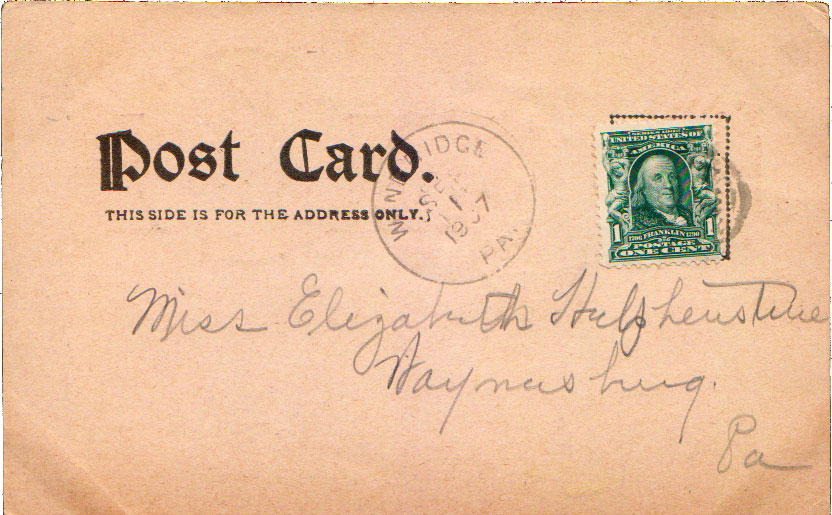 Post Card.
THIS SIDE IS FOR THE ADDRESS ONLY.
WIND RIDGE
SEP
1907
PA.
SERIES 1902
UNITED STATES OF
AMERICA
1 1
1706 FRANKLIN 1790
POSTAGE
ONE CENT
Miss Elizabeth Hulphenstine
Waynesburg.
Pa